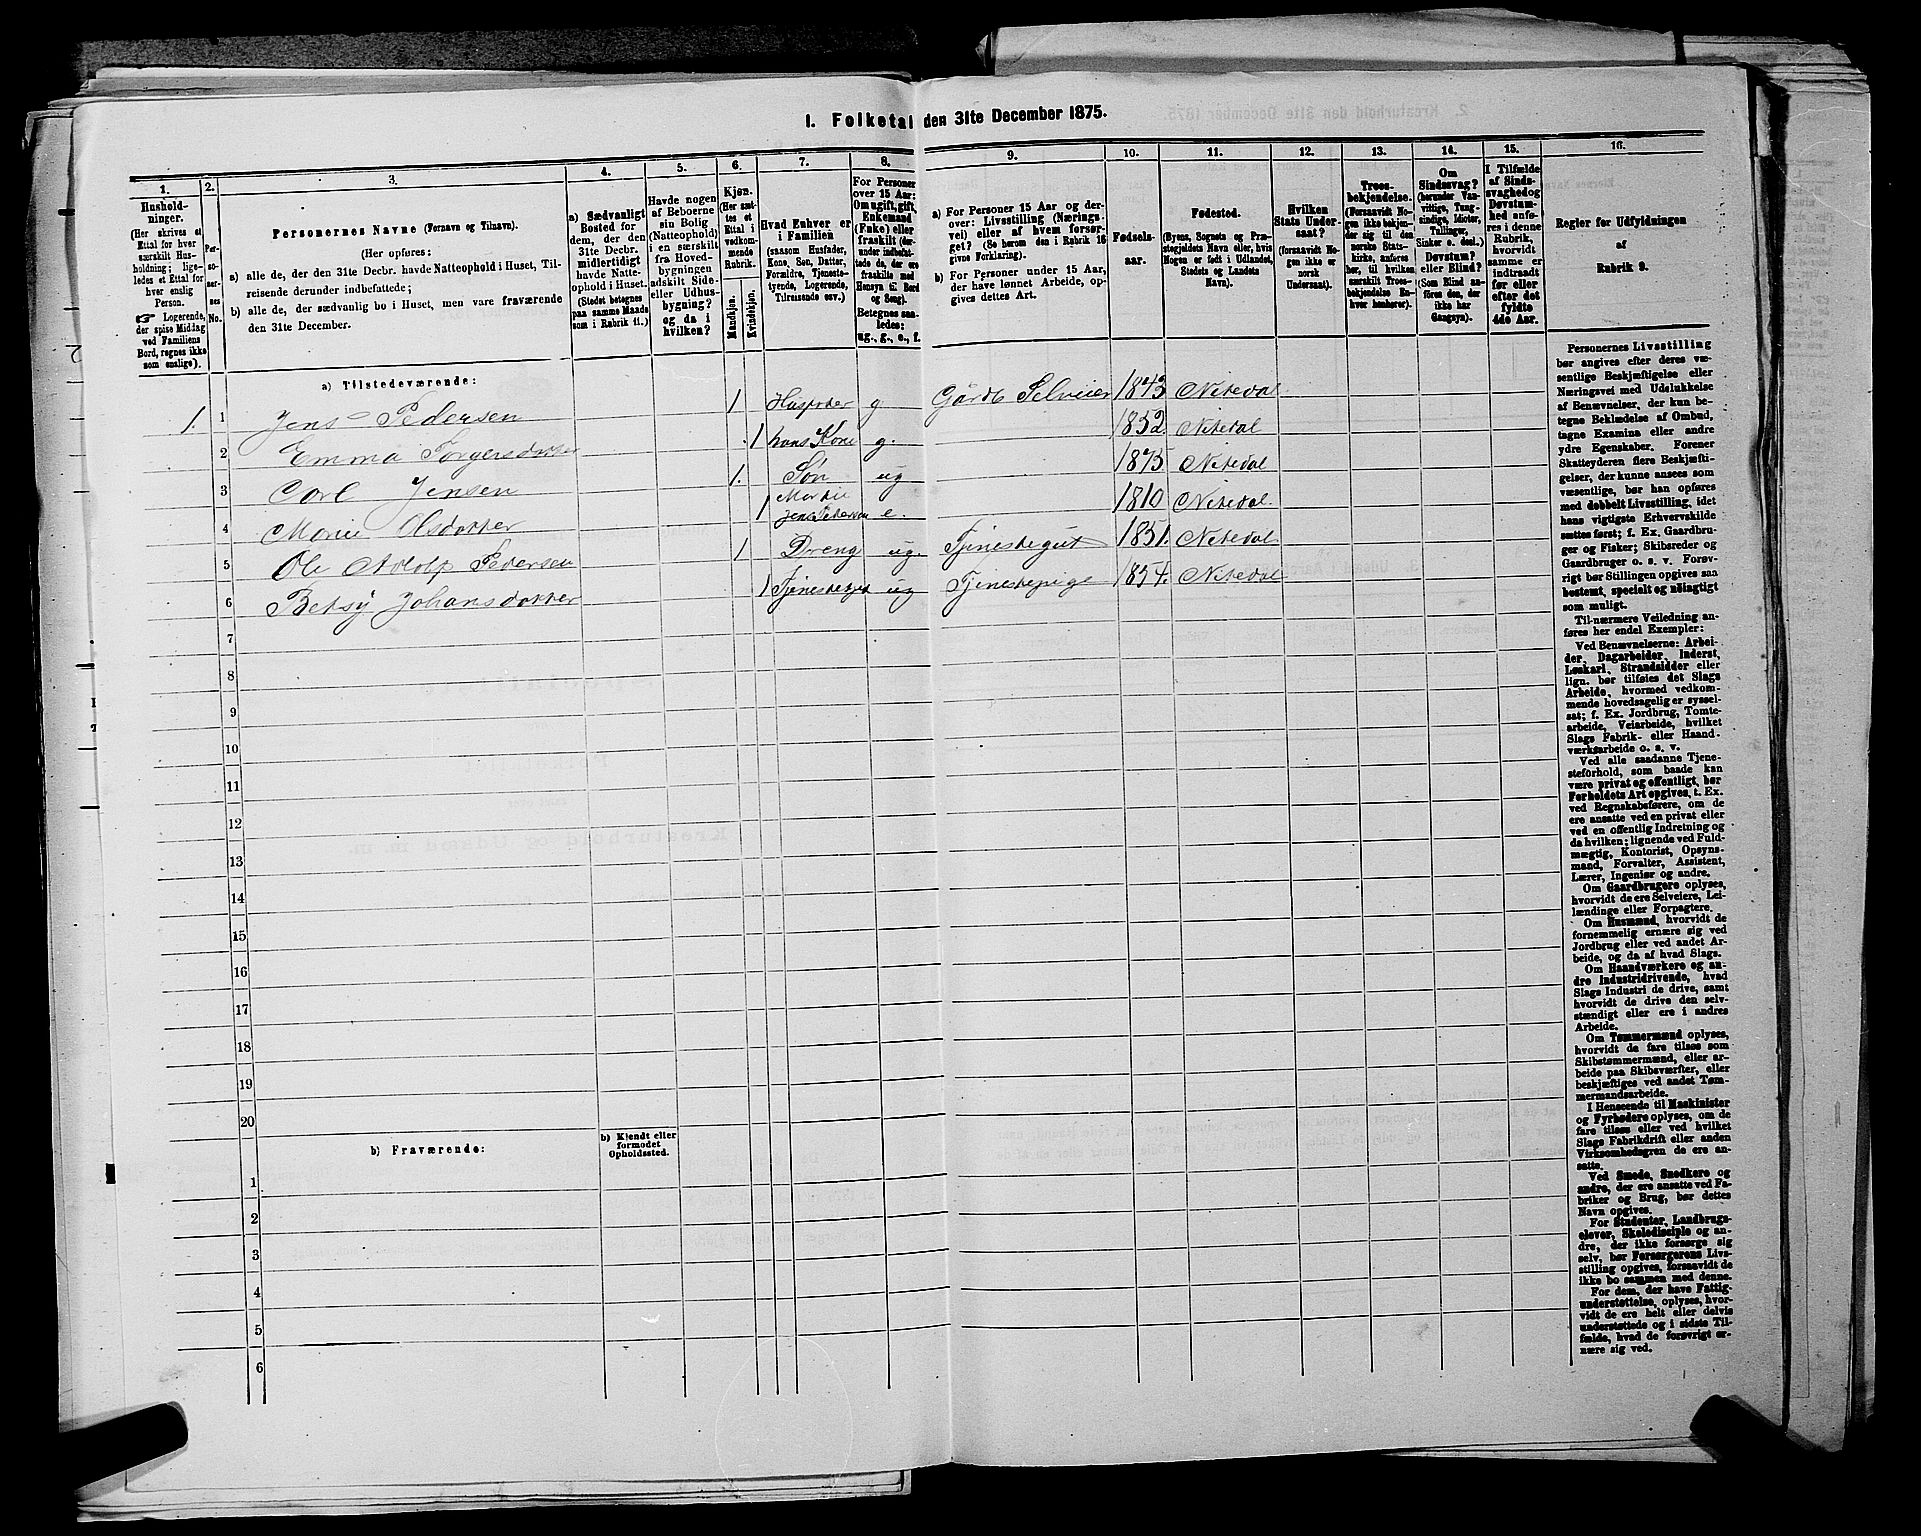 I. Folketal den 31te December 1875.
1. 2. 3. 4. 5. 6. 7. 8. 9. 10. 11. 12. 13. 14. 15. 16.
Hushold-
ninger.
(Her skrives et
Ettal for hver
særskilt Hus-
holdning; lige-
ledes et Ettal for
hver enslig
Person.
☞ Logerende,
der spise Middag
ved Familiens
Bord, regnes ikke
som enslige).
Per-
so-
ner-
nes
No.
Personernes Navne (Fornavn og Tilnavn).
(Her opføres:
a) alle de, der den 31te Decbr. havde Natteophold i Huset, Til-
reisende derunder indbefattede;
b) alle de, der sædvanlig bo i Huset, men vare fraværende
den 31te December.
a) Sædvanligt
Bosted for
dem, der den
31te Decbr.
midlertidigt
havde Natte-
ophold i Huset.
(Stedet betegnes
paa samme Maade
som i Rubrik 11.)
Havde nogen
af Beboerne
sin Bolig
(Natteophold)
i en særskilt
fra Hoved-
bygningen
adskilt Side-
eller Udhus-
bygning?
og da i
hvilken?
Kjøn.
(Her sæt-
tes et
Ettal i
vedkom-
mende
Rubrik.
Mandkjøn.
Kvindekjøn.
Hvad Enhver er
i Familien
(saasom Husfader,
Kone, Søn, Datter,
Forældre, Tjeneste-
tyende, Logerende,
Tilreisende osv.)
For Personer
over 15 Aar:
Om ugift, gift,
Enkemand
(Enke) eller
fraskilt (der-
under indbefat-
tede da, der ere
fraskilte med
Hensyn til Bord
og Seng).
Betegnes saa-
ledes:
ug., g., e., f.
a) For Personer 15 Aar og der-
over: Livsstilling (Nærings-
vei) eller af hvem forsør-
get? (Se herom den i Rubrik 16
givne Forklaring).
b) For Personer under 15 Aar,
der have lønnet Arbeide, op-
gives dettes Art.
Fødsels-
aar.
Fødested.
(Byens, Sognets og Præ-
stegjeldets Navn eller, hvis
Nogen er født i Udlandet,
Stedets og Landets
Navn).
Hvilken
Stats Under-
saat?
(forsaavidt No-
gen ikke er
norsk
Undersaat).
Troes-
bekjendelse.
(Forsaavidt No-
gen ikke bekjen-
der sig til den
norske Stats-
kirke, anføres
her, til hvilken
særskilt Troes-
bekjendelse En-
hver henhører).
Om
Sindssvag?
(herunder Van-
vittige, Tung-
sindige, Idioter,
Tullinger,
Sinker o. desl.)
Døvstum?
eller Blind?
(Som Blind an-
føres den, der
ikke har
Gangsyn).
I Tilfælde
af Sinds-
svaghed og
Døvstum-
hed anfø-
res i denne
Rubrik,
hvorvidt
samme er
indtraadt
før eller
efter det
fyldte
4de Aar.
Regler for Udfyldningen
af
Rubrik 9.
a) Tilstedeværende:
1. 1 Jens Pedersen 1 Husfader g Gårdb Selveier 1843 Nitedal
2 Emma Torgersdatter 1 hans Kone g. 1852 Nitedal
3 Carl Jensen 1. Søn ug 1875 Nitedal
4 Marie Olsdatter 1 Jens Pedersen e. 1810 Nitedal.
5 Ole Adolf Pedersen 1 Dreng ug. Tjenestegut 1851. Nitedal
6 Betsy Johansdatter 1 ug Tjenestepige 1854. Nitedal
7
8
9
10
11
12
13
14
15
16
17
18
19
20
b) Fraværende:
b) Kjendt eller
formodet
Opholdssted.
1
2
3
4
5
6
Personernes Livsstilling
bør angives efter deres væ-
sentlige Beskjæftigelse eller
Næringsvei med Udelukkelse
af Benævnelser, der kun be-
tegne Beklædelse af Ombud,
tagne Examina eller andre
ydre Egenskaber. Forener
Skatteyderen flere Beskjæfti-
gelser, der kunne ansees som
væsentlige, bør han opføres
med dobbelt Livsstilling, idet
hans vigtigste Erhvervskilde
sættes først; f. Ex. Gaardbru-
ger og Fisker; Skibsreder og
Gaardbruger o. s. v. Forøv-
rigt bør Stillingen opgives saa
bestemt, specielt og nøiagtigt
som muligt.
Til nærmere Veiledning an-
føres her endel Exempler:
Ved Benævnelserne: Arbei-
der, Dagarbeider, Inderst,
Løskarl, Strandsidder eller
lign. bør tilføies det Slags
Arbeide, hvormed vedkom-
mende hovedsagelig er syssel-
sat; f. Ex. Jordbrug, Tomte-
arbeide, Veiarbeide, hvilket
Slags Fabrik- eller Haand-
værksarbeide o. s. v.
Ved alle saadanne Tjene-
steforhold, som baade kan
være privat og offentligt, bør
Forholdets Art opgives, t. Ex.
ved Regnskabsførere, om de
ere ansatte ved en privat eller
ved en offentlig Indretning og
da hvilken; lignende ved Fuld-
mægtig, Kontorist, Opsyns-
mand, Forvalter, Assistent,
Lærer, Ingeniør og andre.
Om Gaardbrugere oplyses,
hvorvidt de ere Selveiere, Lei-
lændinge eller Forpagtere.
Om Husmænd, hvorvidt de
fornemmelig ernære sig ved
Jordbrug eller ved andet Ar-
beide, og da af hvad Slags.
Om Haandværkere og an-
dre Industridrivende, hvad
Slags Industri de drive, samt
hvorvidt de drive den selv-
stændigt eller ere i andres
Arbeide.
Om Tømmermænd oplyses,
hvorvidt de fare tilsøs som
Skibstømmermænd, eller ar-
beide paa Skibsværfter, eller
beskjæftiges ved andet Tøm-
mermandsarbeide.
I Henseende til Maskinister
og Fyrbødere oplyses, om de
fare tilsøs eller ved hvilket
Slags Fabrikdrift eller anden
Virksomhedsgren de ere an-
satte.
Ved Smede, Snedkere og
andre, der ere ansatte ved Fa-
briker og Brug, bør dettes
Navn opgives.
For Studenter, Landbrugs-
elever, Skoledisciple og an-
dre, der ikke forsørge sig
selv, bør Forsørgerens Livs-
stilling opgives, forsaavidt de
ikke bo sammen med denne.
For dem, der have Fattig-
understøttelse, oplyses, hvor-
vidt de ere helt eller delvis
understøttede og i sidste Til-
fælde, hvad de forøvrigt er-
nære sig ved.